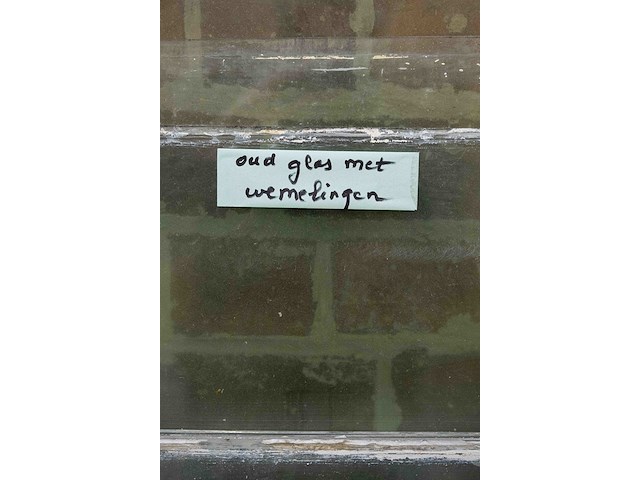 oud glas met
wemelingen